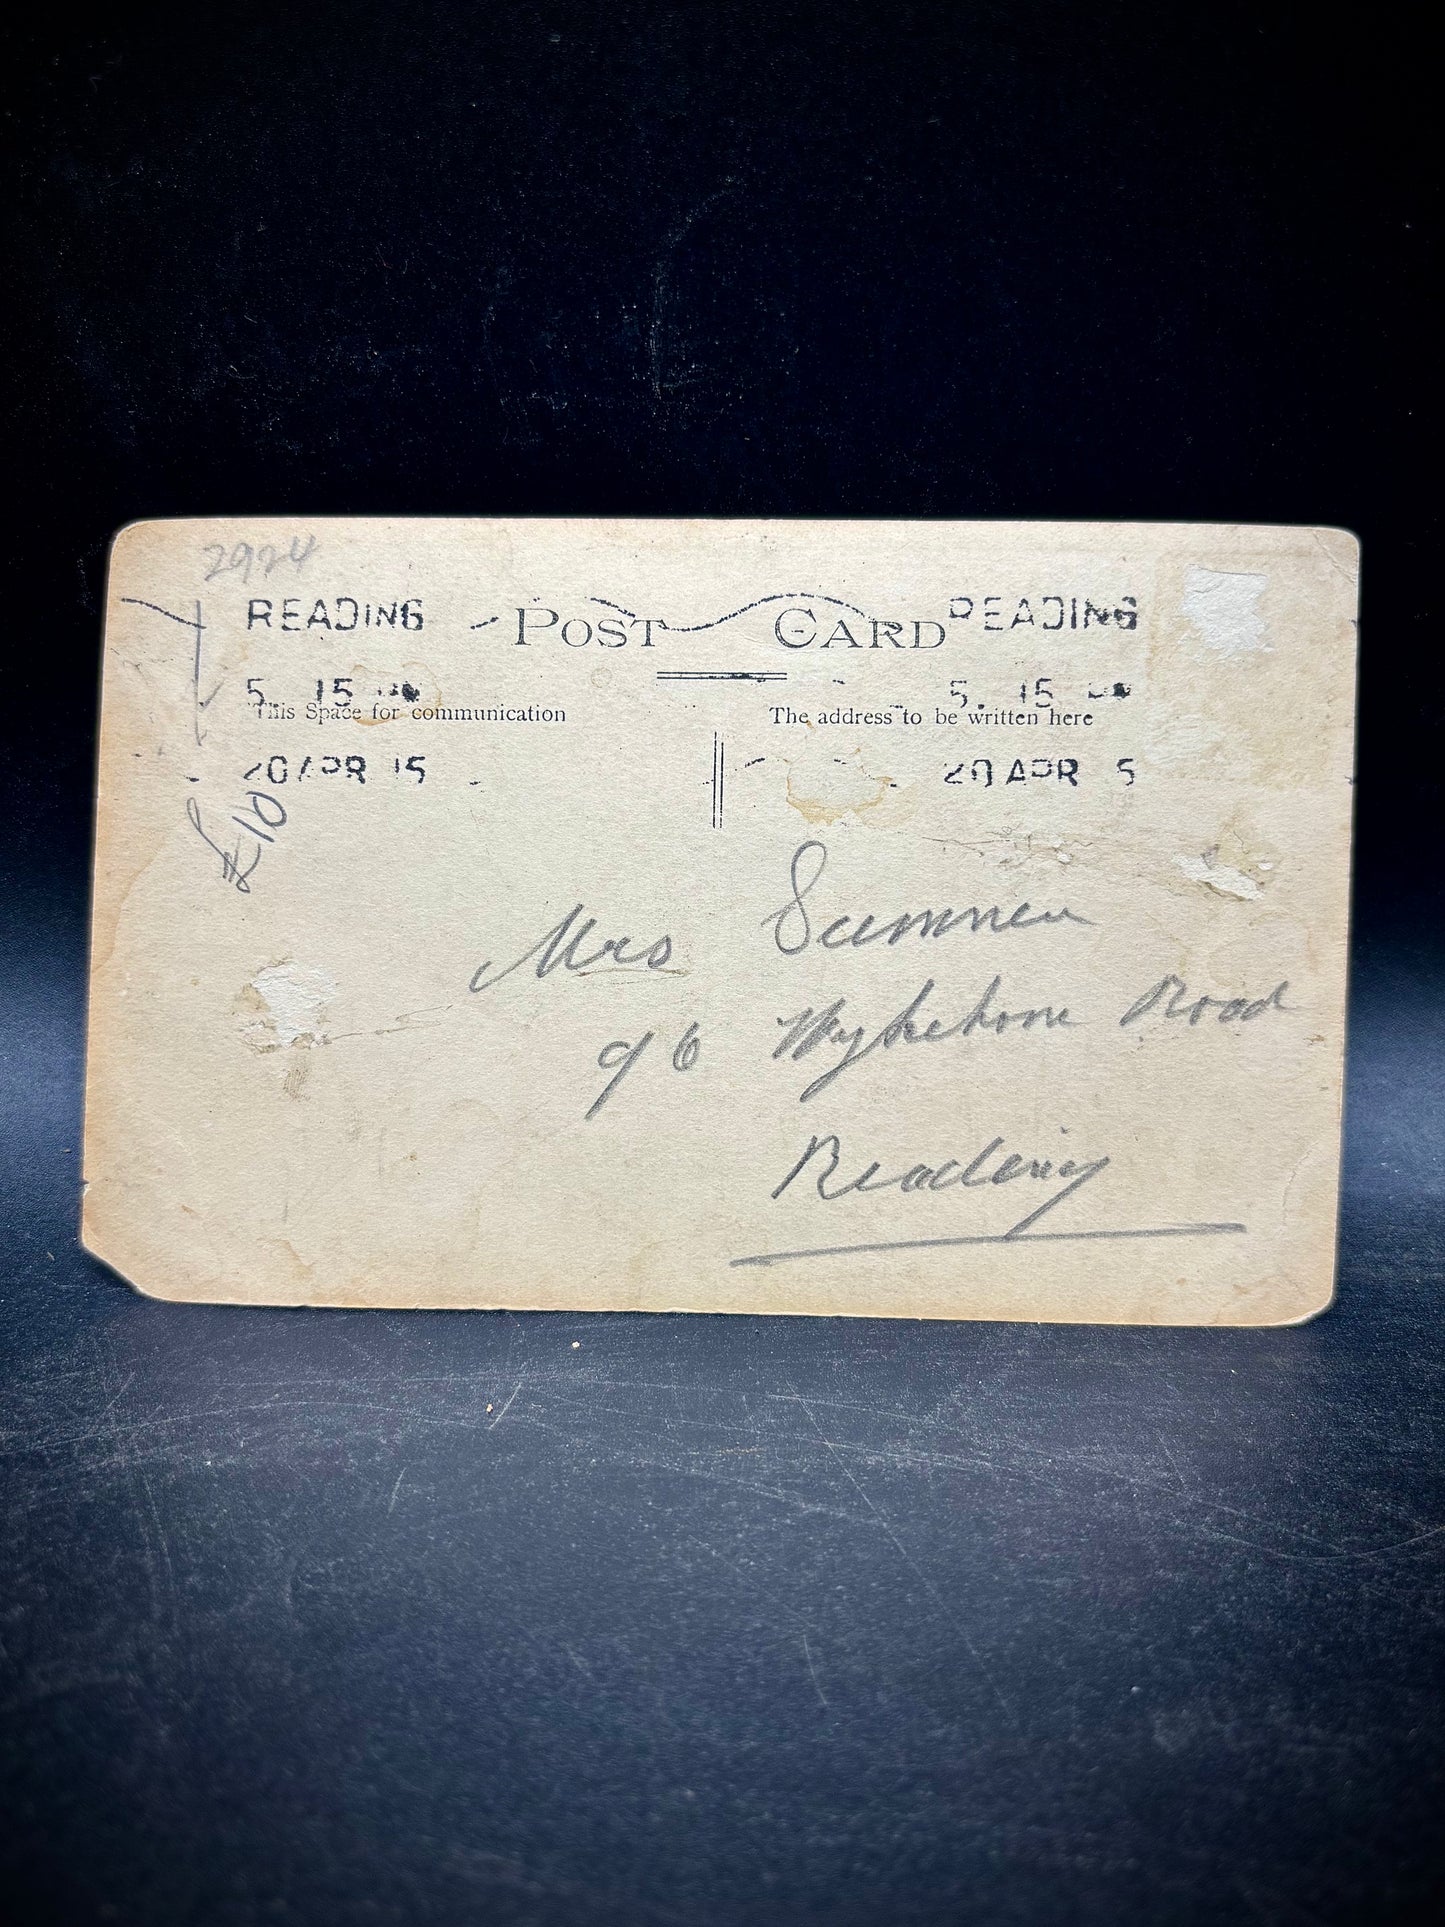 2924
READING POST CARD READING
5. 15 PM 5. 15 PM
This Space for communication The address to be written here
20 APR 15 20 APR 5
£10
Mrs Sumner
96 Wykeham Road
Reading